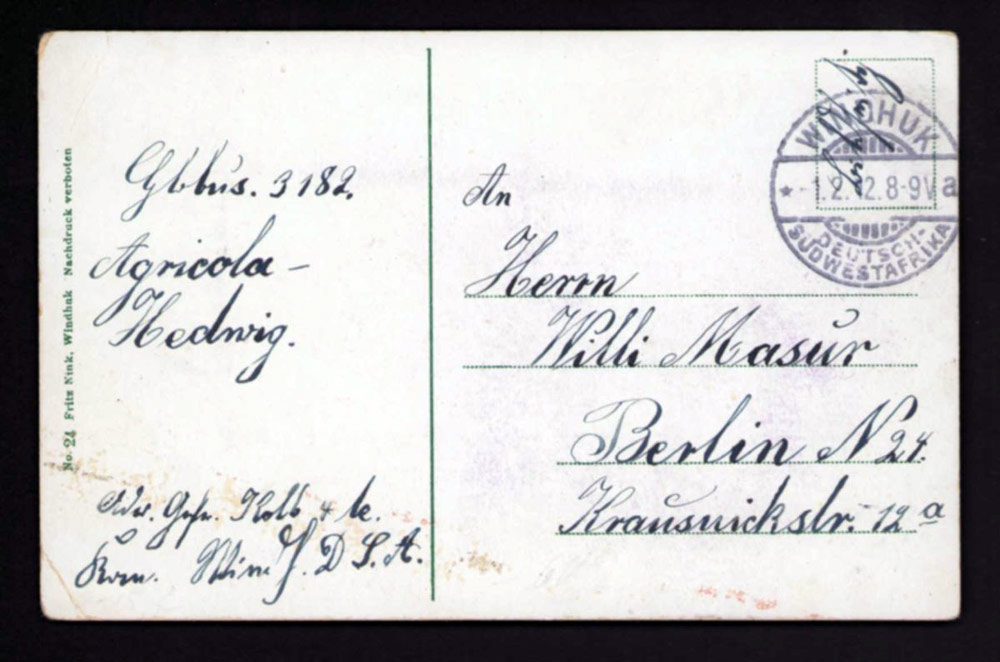 No. 24 Fritz Nink, Windhuk Nachdruck verboten
3182.
Agricola –
Hedwig.
Kolb
D. S. A.
An
Herrn
Willi Masur
Berlin N 24.
Krausnickstr. 12 a
WINDHUK
* 1.2.12.8-9V a
DEUTSCH-
SÜDWESTAFRIKA